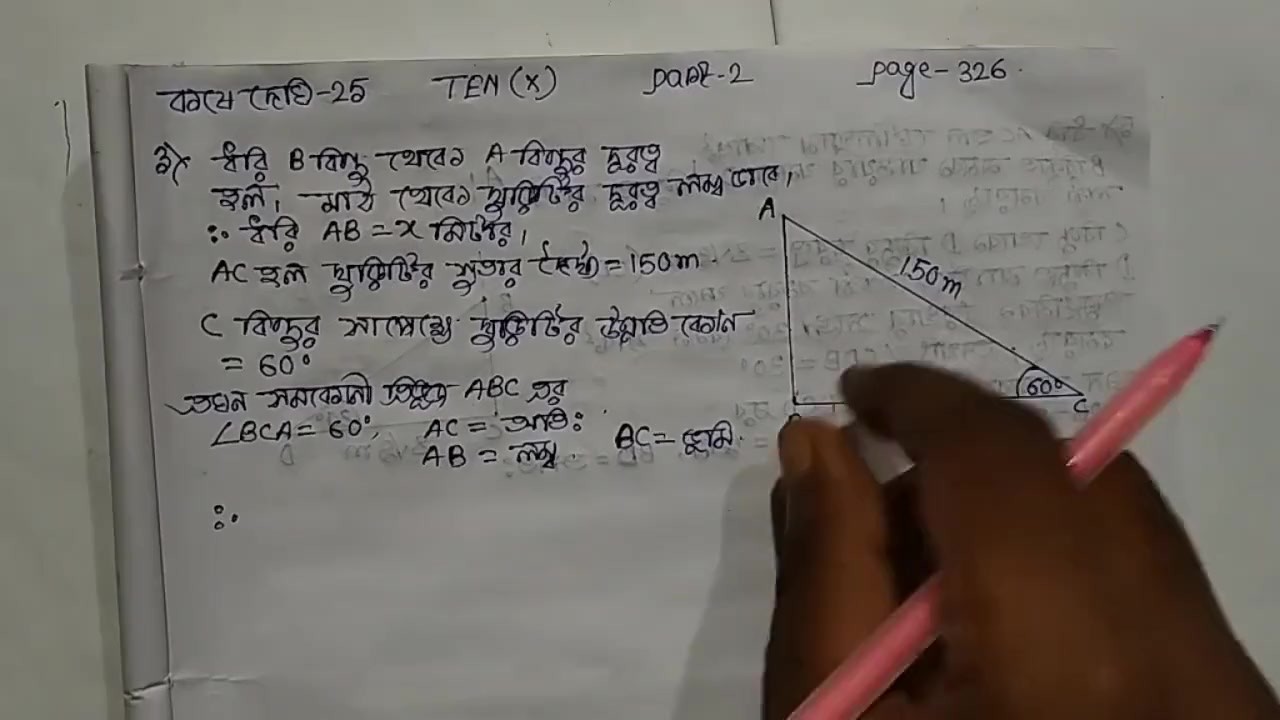 কষে দেখি-25 TEN (X) part-2 page-326.
3) ধরি B বিন্দু থেকে A বিন্দুর দূরত্ব
হল, মাঠ থেকে ঘুড়িটির দূরত্ব লম্ব ভাবে,
∴ ধরি AB = x মিটার,
AC হল ঘুড়িটির সুতার দৈর্ঘ্য = 150m
C বিন্দুর সাপেক্ষে ঘুড়িটির উন্নতি কোন
= 60°
তখন সমকোনী ত্রিভুজ ABC এর
∠BCA = 60°, AC = অতিঃ BC = ভূমি.
AB = লম্ব.
∴
A
150m
60°
C